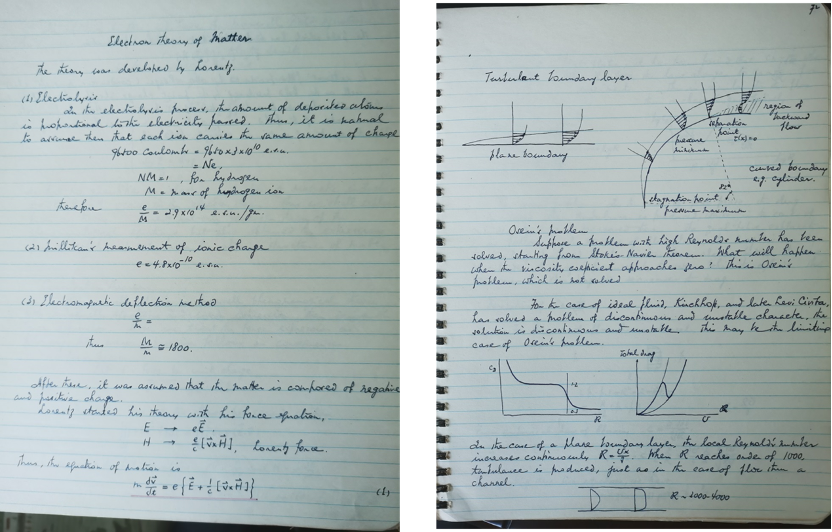 Electron theory of Matter
The theory was developed by Lorentz.
(1) Electrolysis
In the electrolysis process, the amount of deposited atoms
is proportional to the electricity passed. Thus, it is natural
to assume then that each ion carries the same amount of charge
96500 Coulombs = 9650 x 3 x 10^10 e.s.u.
= Ne,
NM = 1, for hydrogen
M = mass of hydrogen ion
therefore e/M = 2.9 x 10^14 e.s.u./gr.
(2) Millikan's measurement of ionic charge
e = 4.8 x 10^-10 e.s.u.
(3) Electromagnetic deflection method
e/m =
thus M/m ≅ 1800.
After these, it was assumed that the matter is composed of negative
and positive charge.
Lorentz started his theory with his force equation,
E → eE⃗,
H → e/c [v⃗ x H⃗], Lorentz force.
Thus, the equation of motion is
m dv⃗/dt = e { E⃗ + 1/c [v⃗ x H⃗] }
(1)
Turbulent boundary layer
plane boundary
separation
point
pressure
minimum
region of
backward
flow
curved boundary
e.g. cylinder.
stagnation point
pressure maximum
Oseen's problem
Suppose a problem with high Reynold's number has been
solved, starting from Stokes Navier theorem. What will happen
when the viscosity coeficient approaches zero? This is Oseen's
problem, which is not solved
For the case of ideal fluid, Kirchhof, and late Levi Civita,
has solved a problem of discontinuous and unstable character. The
solution is discontinuous and unstable. This may be the limiting
case of Oseen's problem.
Total drag
R
U
In the case of a plane boundary layer, the local Reynold's number
increases continuously R = Ux/ν. When R reaches order of 1000,
turbulance is produced, just as in the case of flow thru a
channel.
R ~ 1000-4000